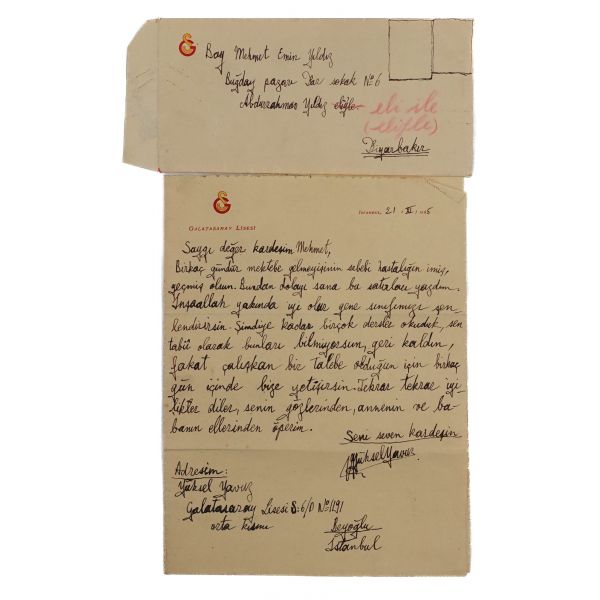 Bay Mehmet Emin Yıldız
Buğday pazarı Dar sokak Nº 6
Abdurrahman Yıldız eliyle
eli ile
(elifle)
Diyarbakır
GALATASARAY LİSESİ
İSTANBUL, 21 . XI . 1945
Saygı değer kardeşim Mehmet,
Birkaç gündür mektebe gelmeyişinin sebebi hastalığın imiş,
geçmiş olsun. Bundan dolayı sana bu satırları yazdım.
İnşaallah yakında iyi olur gene sınıfımızı şen-
lendirirsin. Şimdiye kadar birçok dersler okuduk, sen
tabiî olarak bunları bilmiyorsun, geri kaldın,
fakat çalışkan bir Talebe olduğun için birkaç
gün içinde bize yetişirsin. Tekrar tekrar iyi-
likler diler, senin gözlerinden, annenin ve ba-
banın ellerinden öperim.
Seni seven kardeşin
Yüksel Yavuz
Adresim:
Yüksel Yavuz
Galatasaray Lisesi S: 6/D Nº 1191
orta kısmı
Beyoğlu
İstanbul